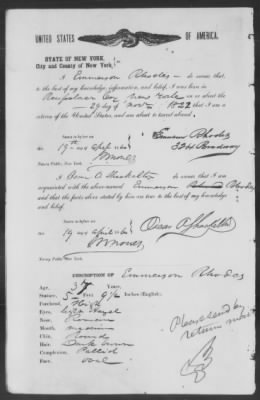 UNITED STATES OF AMERICA.
STATE OF NEW YORK,
City and County of New York,
I Emmerson Rhodes do swear that,
to the best of my knowledge, information, and belief, I was born in
New York on or about the
29 day of Nov 1822 that I am a
citizen of the United States, and am about to travel abroad.
Sworn to before me
19th day April 186
Emmerson Rhodes
Broadway
Notary Public, New York.
I do swear that I am
acquainted with the above-named Emmerson Rhodes
and that the facts above stated by him are true to the best of my knowledge
and belief.
Sworn to before me
19 day April 186
Notary Public, New York.
DESCRIPTION OF Emmerson Rhodes
Age, 37 Years,
Stature, 5 Feet 9 1/2 Inches (English),
Forehead, High
Eyes, Hazel
Nose, Roman
Mouth, medium
Chin, Round
Hair, Dark brown
Complexion, Pallid
Face, oval
Please send by
return mail